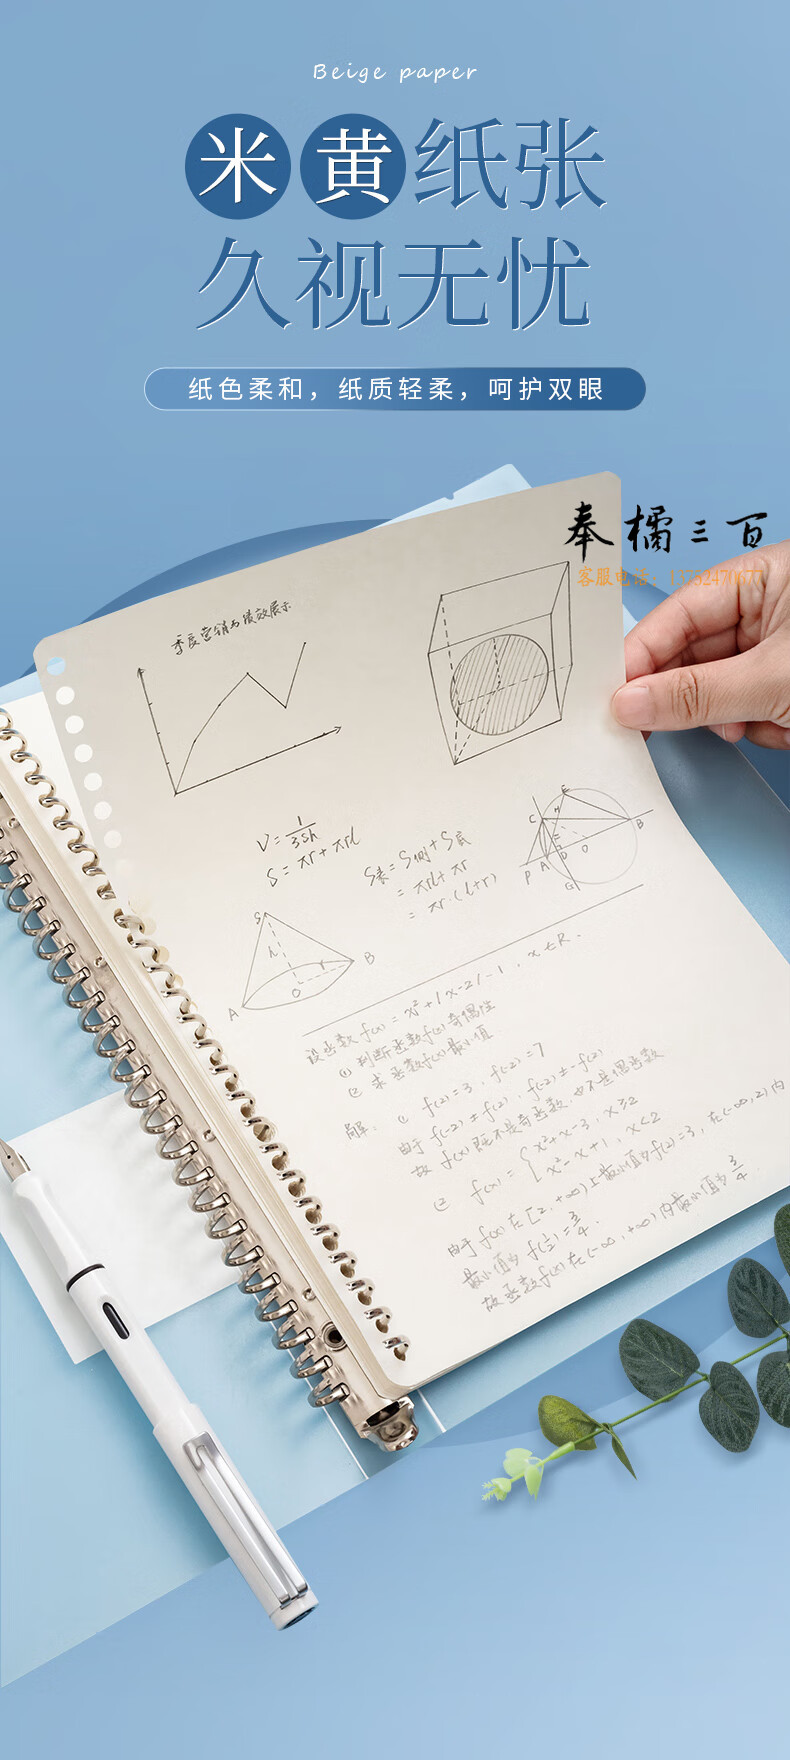 Beige paper
米黄纸张
久视无忧
纸色柔和，纸质轻柔，呵护双眼
奉橘三百
客服电话：13552470677
季度营销与绩效展示
V = 1/3Sh
S = πr + πrl
S表 = S侧 + S底
= πrl + πr
= πr·(l+r)
C
E
H
B
P
A
D
O
G
S
h
r
A
O
B
设函数 f(x) = x²+|x-2|-1，x∈R.
(1) 判断函数f(x)奇偶性
(2) 求函数f(x)最小值
解：(1) f(2)=3，f(-2)=7
由于 f(-2)≠f(2)，f(-2)≠-f(2)
故 f(x)既不是奇函数，也不是偶函数
(2) f(x) = { x²+x-3，x≥2
x²-x+1，x<2
由于 f(x)在[2，+∞)上最小值为f(2)=3，在(-∞,2)内
最小值为 f(1/2)=3/4.
故函数f(x)在(-∞，+∞)内最小值为3/4.